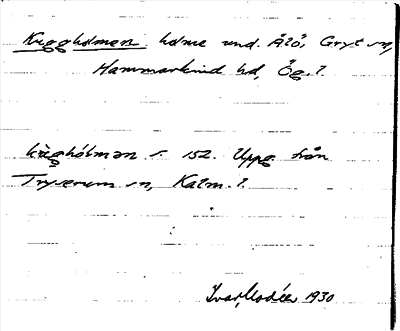 Kriggholmen holme und. Ålö, Gryt sn,
Hammarkind hd, Ög. l.
krìghòlmən s. 152. Uppg. från
Tryserum sn, Kalm. l.
Ivar Modéer 1930